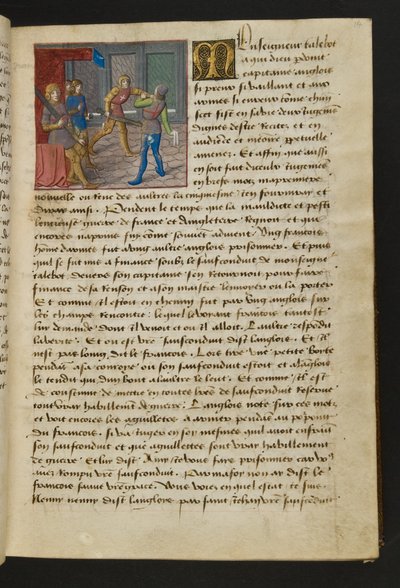 14
Monseigneur talebot
a qui dieu pardont
capitaine anglois
si preux si vaillant et aux
armes si eureux come chun
scet fist en sa vie deux iugemens
dignes destre recitez et en
audience et memoire perpetuelle
amenez Et affin que aussi
en soit fait diceulx iugemens
en bref motz ma premiere
nouvelle ou renc des aultres la cinquiesme Jen fourniray et
diray ainsi. Pendent le temps que la mauldicte et pesti
lencieuse guerre de france et dangleterre Regnoit et qui
encores na prins fin come souvent advient Ung francois
home darmes fut a ung aultre anglois prisonnier. Et puis
quil se fut mis a finance soubz le saufconduit de monseignr
talebot devers son capitaine sen retournoit pour faire
finance de sa renson et a son maistre lenvoyer ou la porter
Et comme il estoit en chemin fut par ung anglois sur
les champs rencontre lequel le voyant francois tantost
luy demande dont il venoit et ou il alloit. Laultre respondi
la verite. Et ou est vre saufconduit dist langlois. Et il
nest pas loing dit le francois. Lors tire une petite boite
pendant a sa conroye ou son saufconduit estoit et a langlois
le tendit qui dun bout a laultre le leut. Et comme il est
de coustume de mettre en toutes lres de saufconduit Reserve
tout vray habillement de guerre. Langlois note sur ces motz
et voit encores les aguillettes a armer pendans au pourpoint
du francois. si va iuger en soy mesmes quil avoit enfraint
son saufconduit et que aguillettes sont vray habillement
de guerre Et luy dist. Amy ie vous fays prisonnier car vous
avez rompu vre saufconduit. Par ma foy non ay dist le
francois sauve vre grace. Vous voiez en quel estat ie suis
Nenny nenny dist langlois par saint iehan vre saufconduit